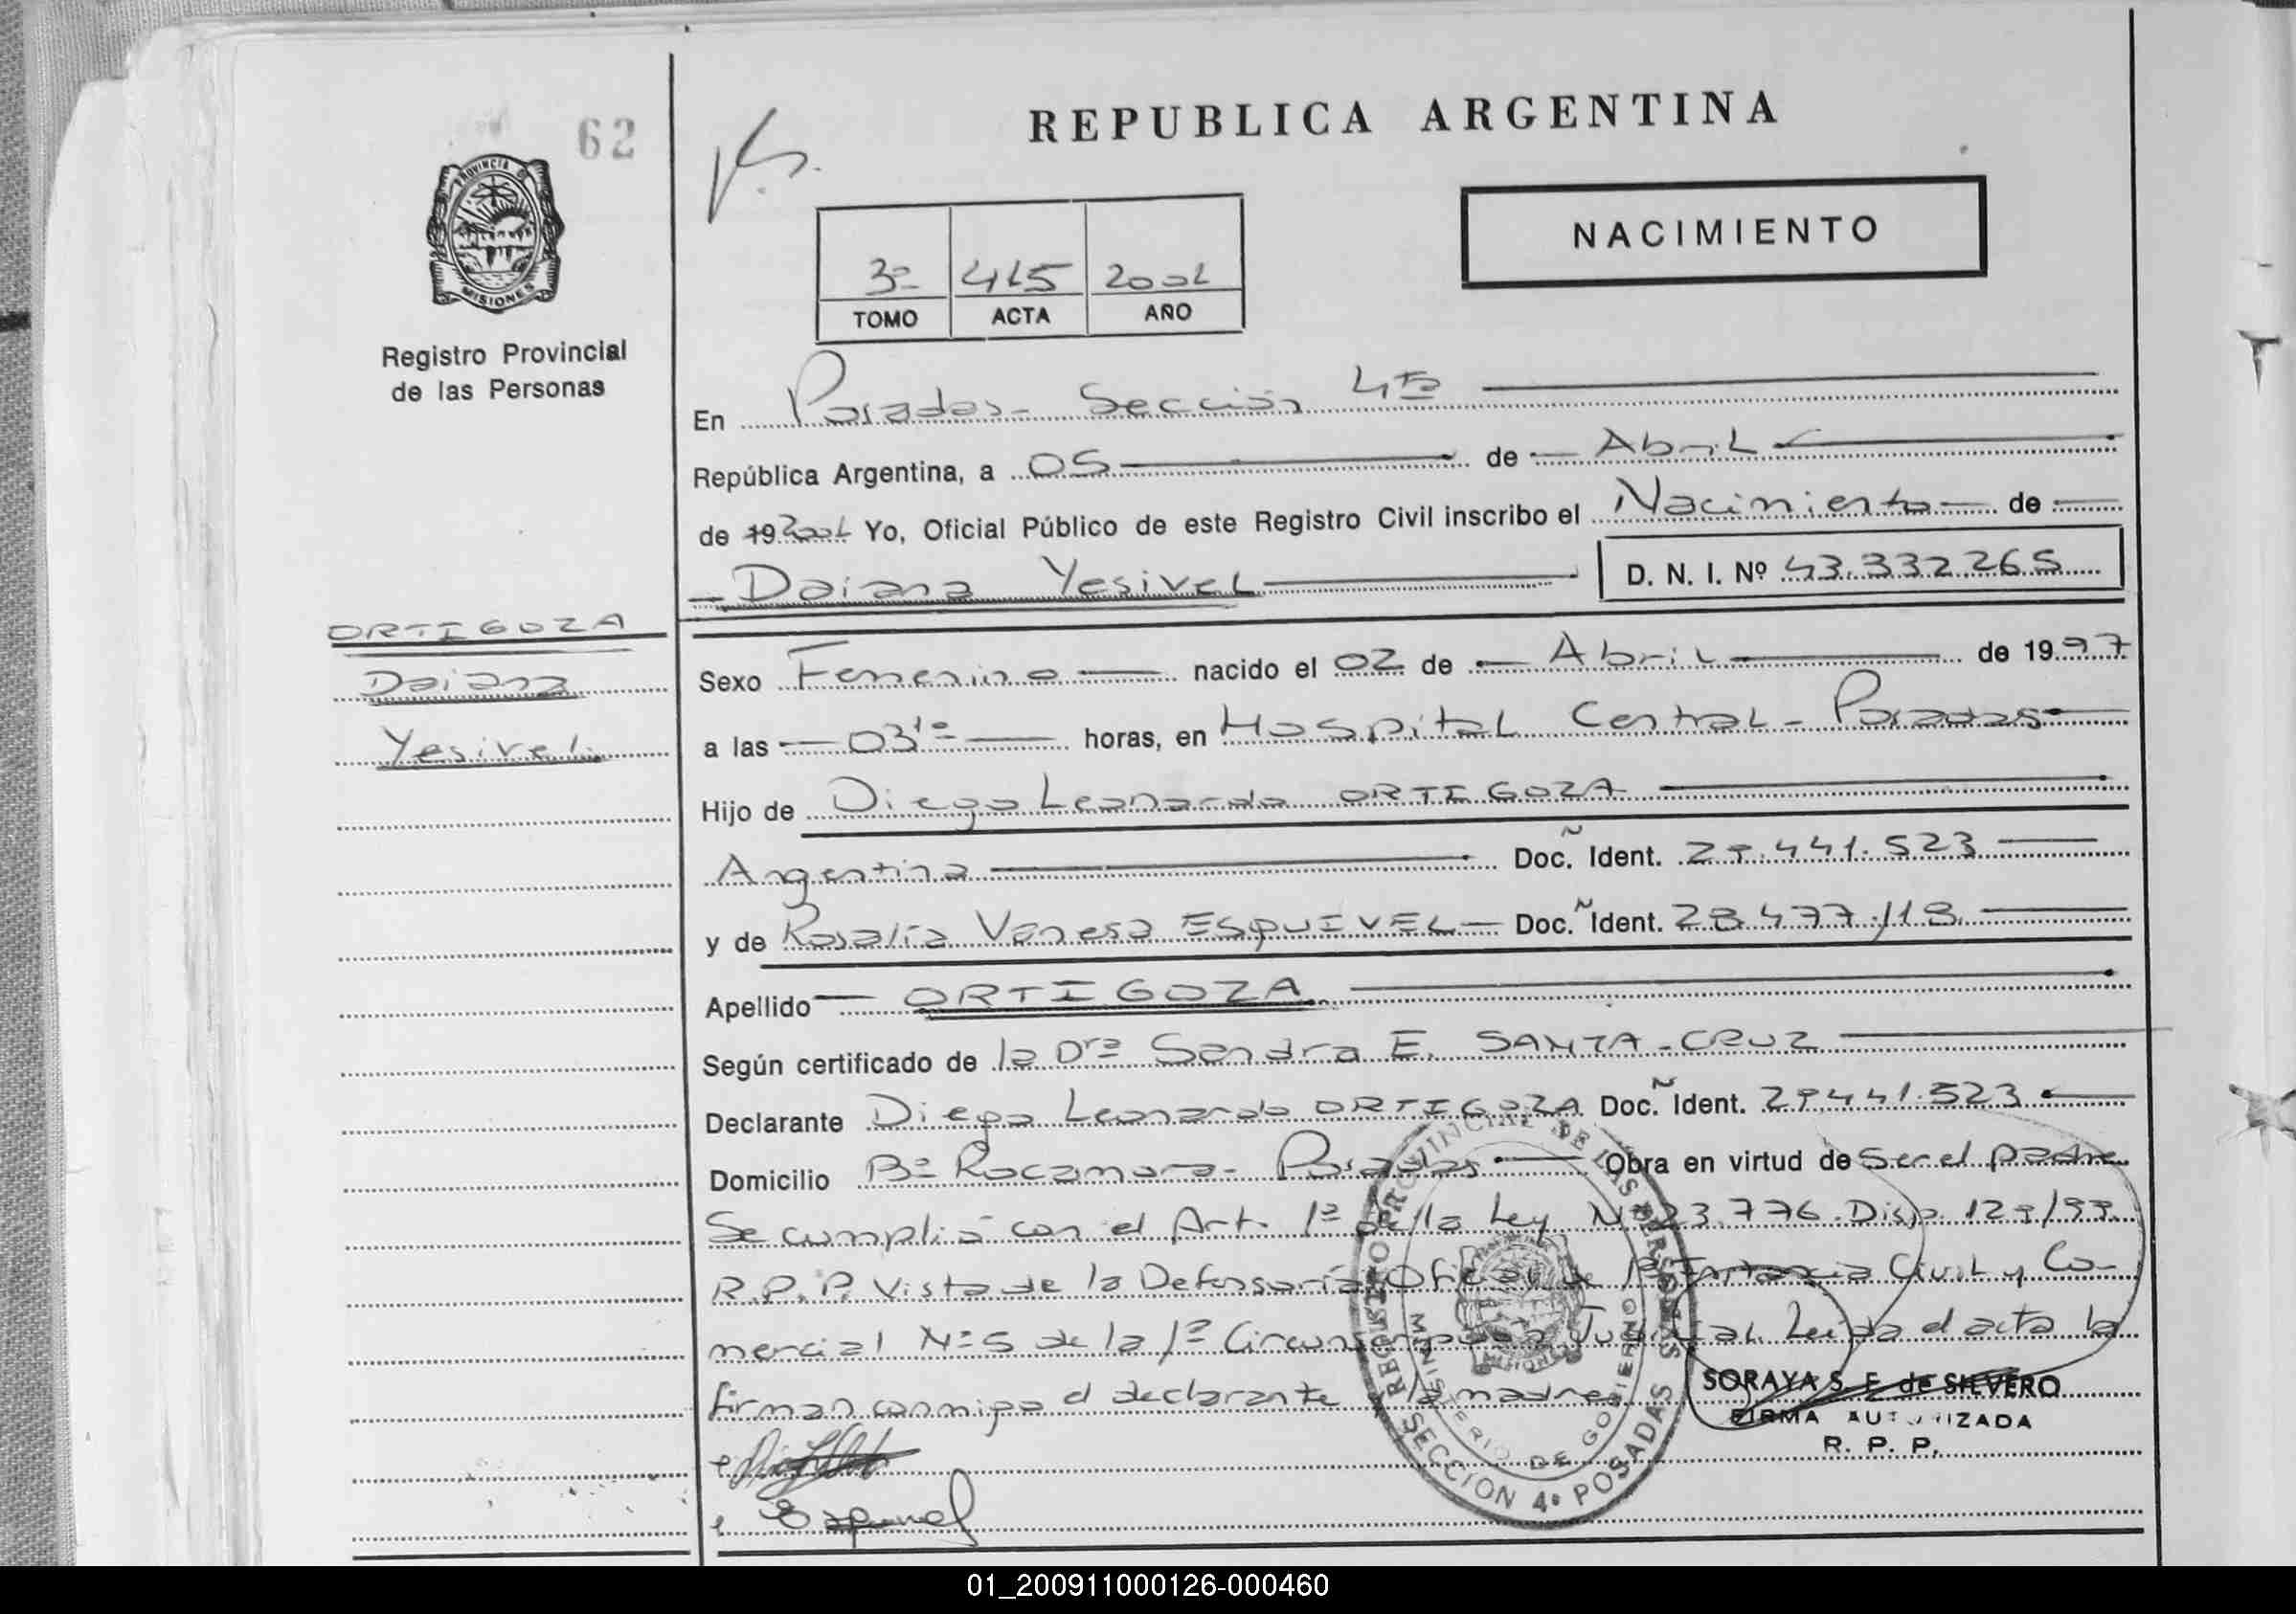 62
REPUBLICA ARGENTINA
PROVINCIA D
MISIONES
NACIMIENTO
3º 415 2001
TOMO ACTA AÑO
Registro Provincial
de las Personas
En Posadas - Sección 4ta
República Argentina, a 05 de Abril
de 19 2001 Yo, Oficial Público de este Registro Civil inscribo el Nacimiento de
Daiana Yesivel D. N. I. Nº 43.332.265
ORTIGOZA
Daiana
Yesivel
Sexo Femenino nacido el 02 de Abril de 1997
a las 03 10 horas, en Hospital Central - Posadas
Hijo de Diego Leonardo ORTIGOZA
Argentina Doc. Ident. 29.441.523
y de Rosalía Vanesa ESQUIVEL Doc. Ident. 28.477.118
Apellido ORTIGOZA
Según certificado de la Dra Sandra E. SANTA-CRUZ
Declarante Diego Leonardo ORTIGOZA Doc. Ident. 29.441.523
Domicilio Bº Rocamora - Posadas Obra en virtud de ser el padre
Se cumplió con el Art. 1º de la Ley Nº 23.776. Disp. 129/99
R.P.P. Vista de la Defensoría Oficial de 1ª Instancia Civil y Co-
mercial Nº 5 de la 1ª Circunscripción Judicial. Leida el acta la
firman conmigo el declarante y la madre
REGISTRO PROVINCIAL DE LAS PERSONAS
MINISTERIO DE GOBIERNO
MISIONES
SECCION 4ª POSADAS
SORAYA S. E. de SILVERO
FIRMA AUTORIZADA
R. P. P.
Esquivel
01_200911000126-000460